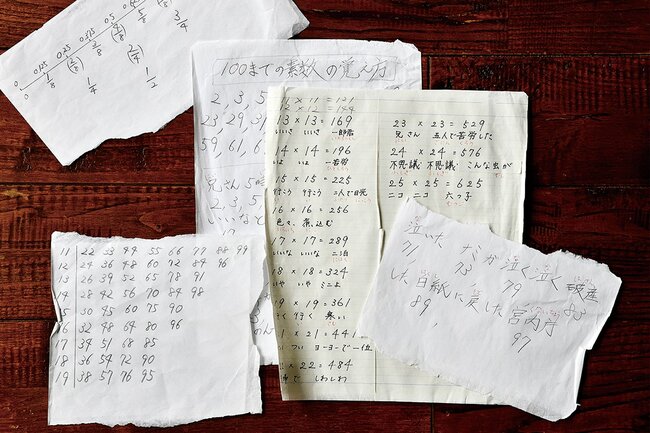 0 0.125 0.25 0.375
0 1/8 (2/8) 3/8 (4/8) 5/8 (6/8)
1/4 (2/4) 3/4
1/2
100までの素数の覚え方
2, 3, 5
23, 29, 31
59, 61, 6
兄さん
2, 3, 5
いいなと
11 × 11 = 121
12 × 12 = 144
13 × 13 = 169
いいさ いいさ 一郎君
14 × 14 = 196
いよ いよ 一苦労
15 × 15 = 225
行こう 行こう 二人で日光
16 × 16 = 256
色々 煮込む
17 × 17 = 289
いいな いいな 二泊
18 × 18 = 324
いや いや
19 × 19 = 361
行く 行く 寒い
21 × 21 = 441
ヨーヨーで一位
22 × 22 = 484
しわしわ
23 × 23 = 529
兄さん 五人で苦労した
24 × 24 = 576
不思議 不思議 こんな虫が
25 × 25 = 625
ニコ ニコ 六つ子
11 22 33 44 55 66 77 88 99
12 24 36 48 60 72 84 96
13 26 39 52 65 78 91
14 28 42 56 70 84 98
15 30 45 60 75 90
16 32 48 64 80 96
17 34 51 68 85
18 36 54 72 90
19 38 57 76 95
泣いた が泣く泣く 破産
71 73 79 83
した 白紙に戻した宮内庁
89 97